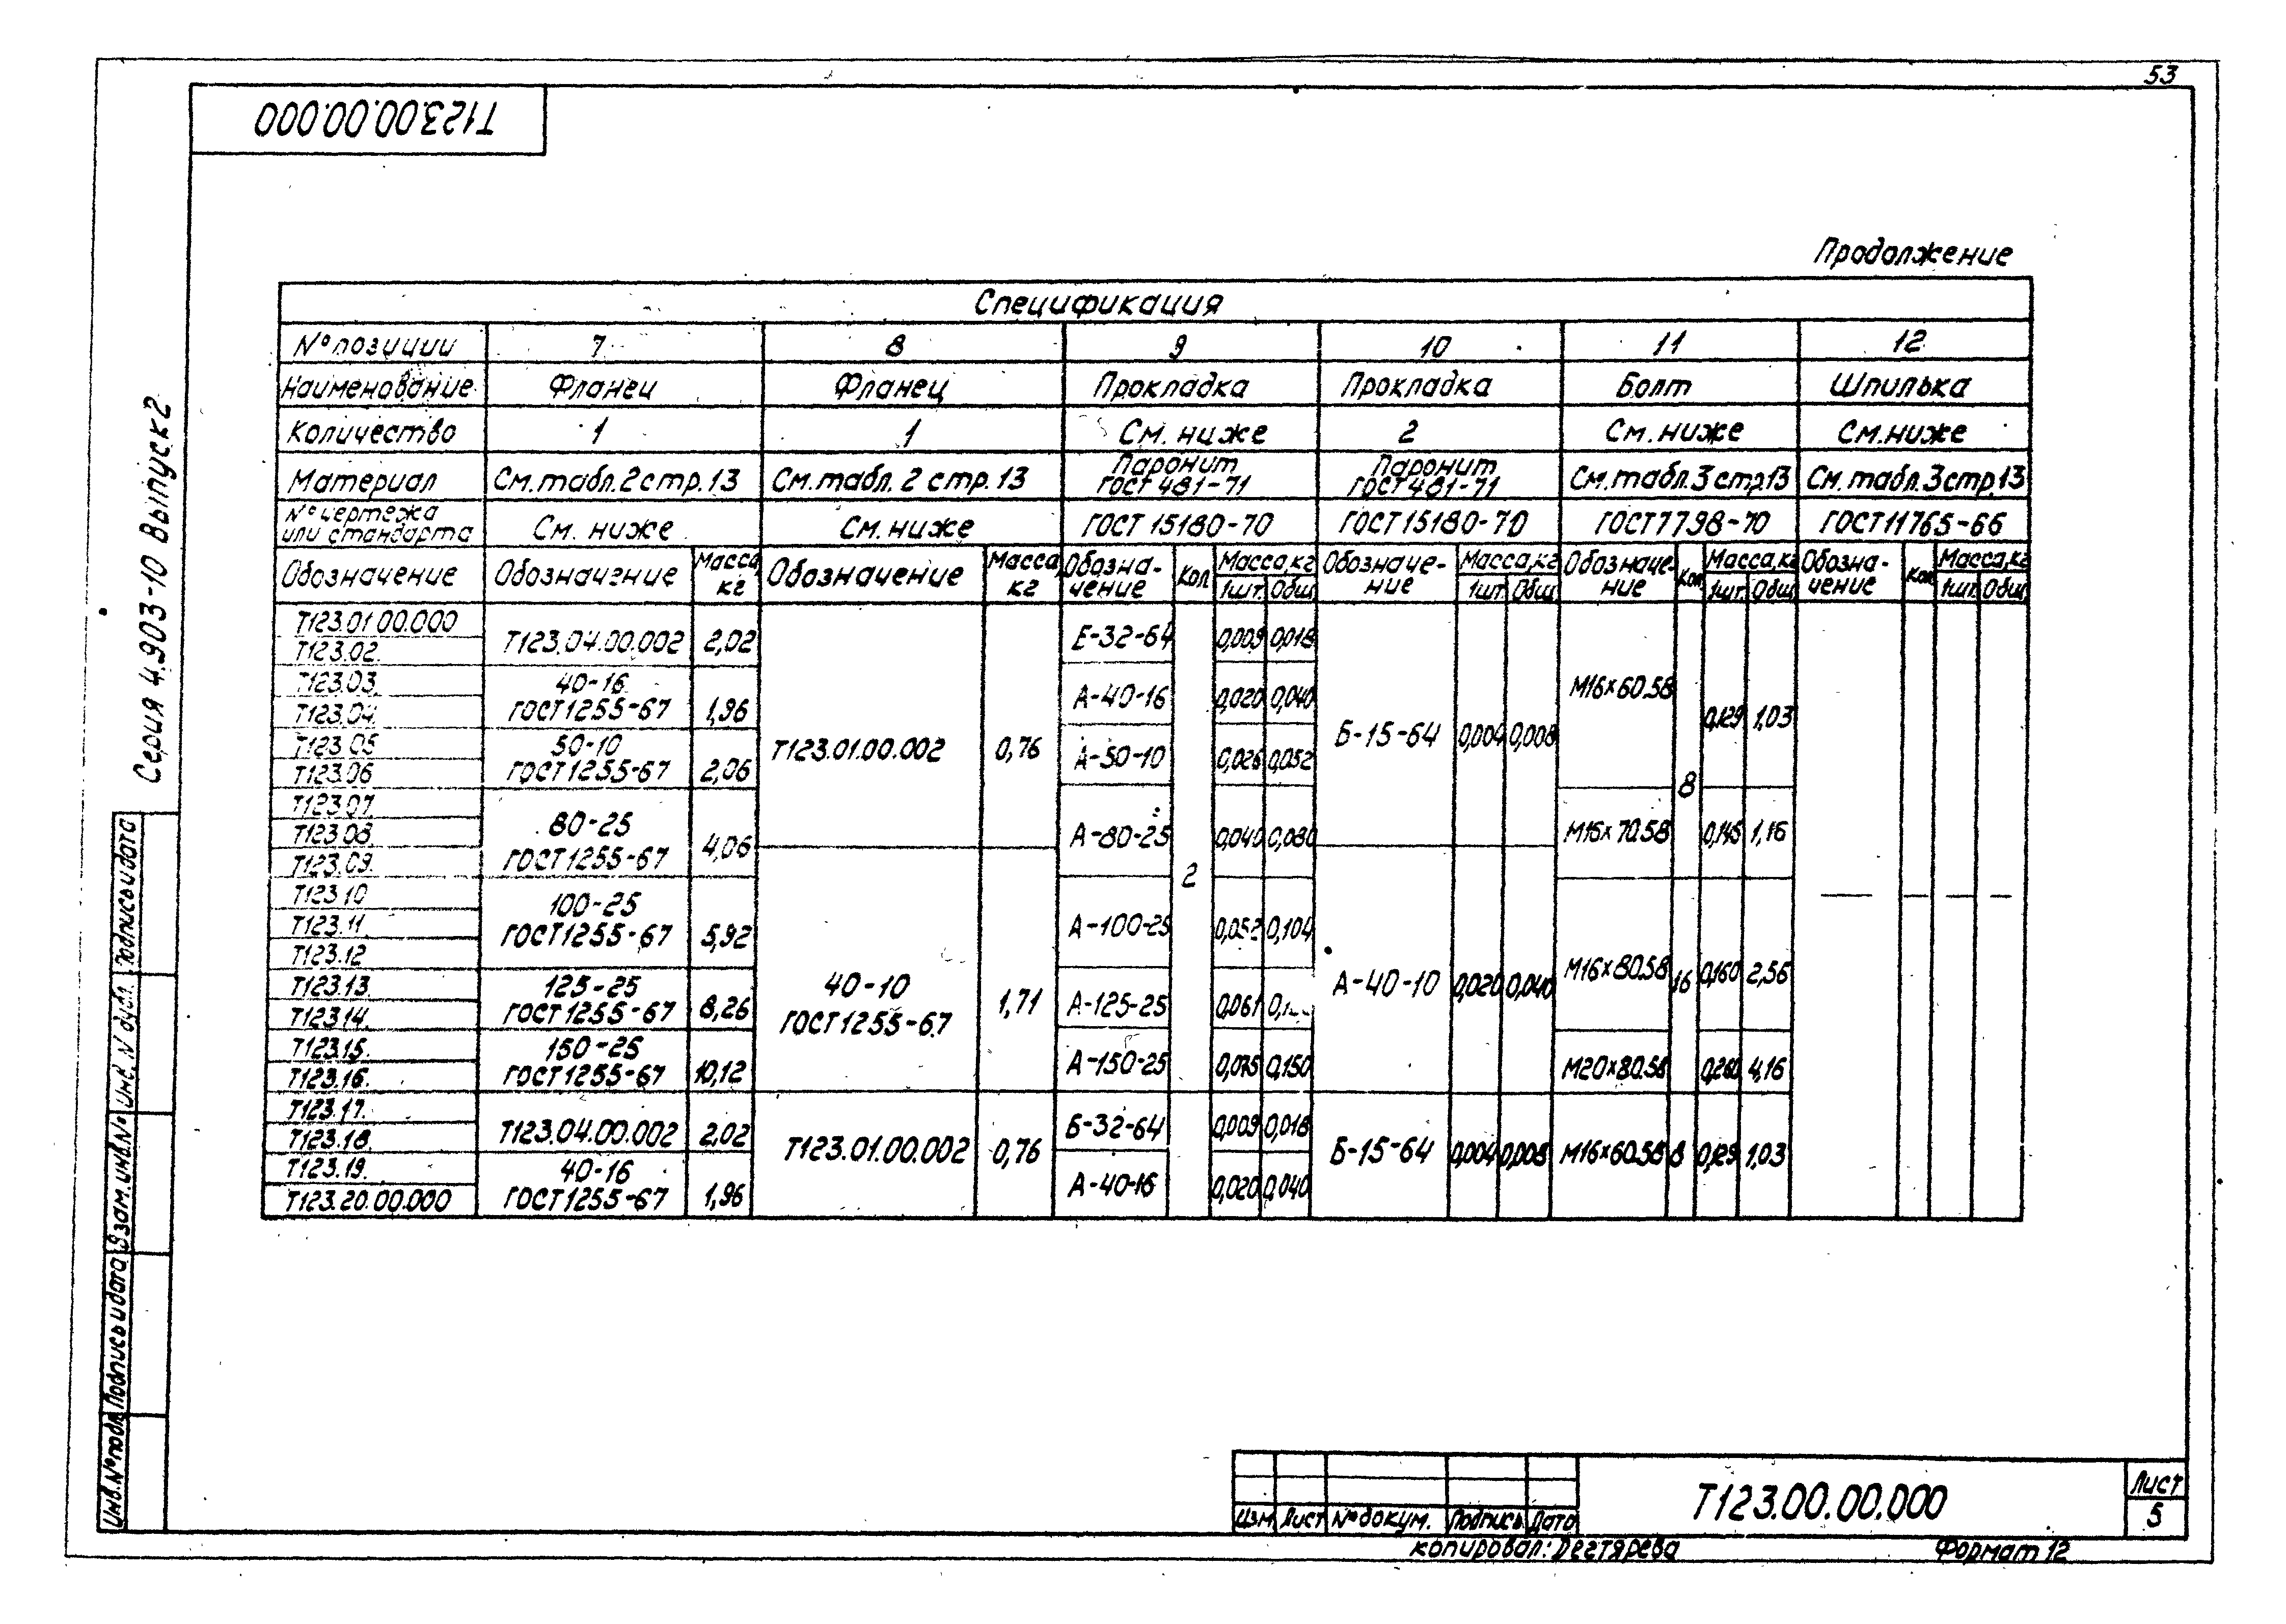 53
Т123.00.00.000
Серия 4.903-10 Выпуск2
Продолжение
Спецификация
№ позиции 7 8 9 10 11 12
Наименование Фланец Фланец Прокладка Прокладка Болт Шпилька
Количество 1 1 См. ниже 2 См. ниже См. ниже
Материал См. табл. 2 стр. 13 См. табл. 2 стр. 13 Паронит ГОСТ 481-71 Паронит ГОСТ 481-71 См. табл. 3 стр. 13 См. табл. 3 стр. 13
№ чертежа или стандарта См. ниже См. ниже ГОСТ 15180-70 ГОСТ 15180-70 ГОСТ 7798-70 ГОСТ 11765-66
Обозначение Обозначение Масса, кг Обозначение Масса, кг Обозна-чение Кол. Масса, кг 1шт. Общ. Обозначе-ние Масса, кг 1шт. Общ. Обозначе-ние Кол. Масса, кг 1шт. Общ. Обозна-чение Кол. Масса, кг 1шт. Общ.
Т123.01.00.000 Т123.04.00.002 2,02 Т123.01.00.002 0,76 Е-32-64 2 0,009 0,018 Б-15-64 0,004 0,008 М16×60.58 8 0,129 1,03 — — — —
Т123.02.
Т123.03. 40-16 ГОСТ 1255-67 1,96 А-40-16 0,020 0,040
Т123.04.
Т123.05 50-10 ГОСТ 1255-67 2,06 А-50-10 0,026 0,052
Т123.06
Т123.07. 80-25 ГОСТ 1255-67 4,06 А-80-25 0,040 0,080 М16×70.58 0,145 1,16
Т123.08.
Т123.09. 40-10 ГОСТ 1255-67 1,71 А-40-10 0,020 0,040
Т123.10 100-25 ГОСТ 1255-67 5,92 А-100-25 0,052 0,104 М16×80.58 16 0,160 2,56
Т123.11.
Т123.12
Т123.13. 125-25 ГОСТ 1255-67 8,26 А-125-25 0,061
Т123.14.
Т123.15. 150-25 ГОСТ 1255-67 10,12 А-150-25 0,075 0,150 М20×80.58 0,260 4,16
Т123.16.
Т123.17. Т123.04.00.002 2,02 Т123.01.00.002 0,76 Б-32-64 0,009 0,018 Б-15-64 0,004 0,008 М16×60.58 8 0,129 1,03
Т123.18.
Т123.19. 40-16 ГОСТ 1255-67 1,96 А-40-16 0,020 0,040
Т123.20.00.000
Инв. № подл. Подпись и дата Взам. инв. № Инв. № дубл. Подпись и дата
Изм. Лист № докум. Подпись Дата
Т123.00.00.000
Лист
5
Копировал: Дегтярева
Формат 12